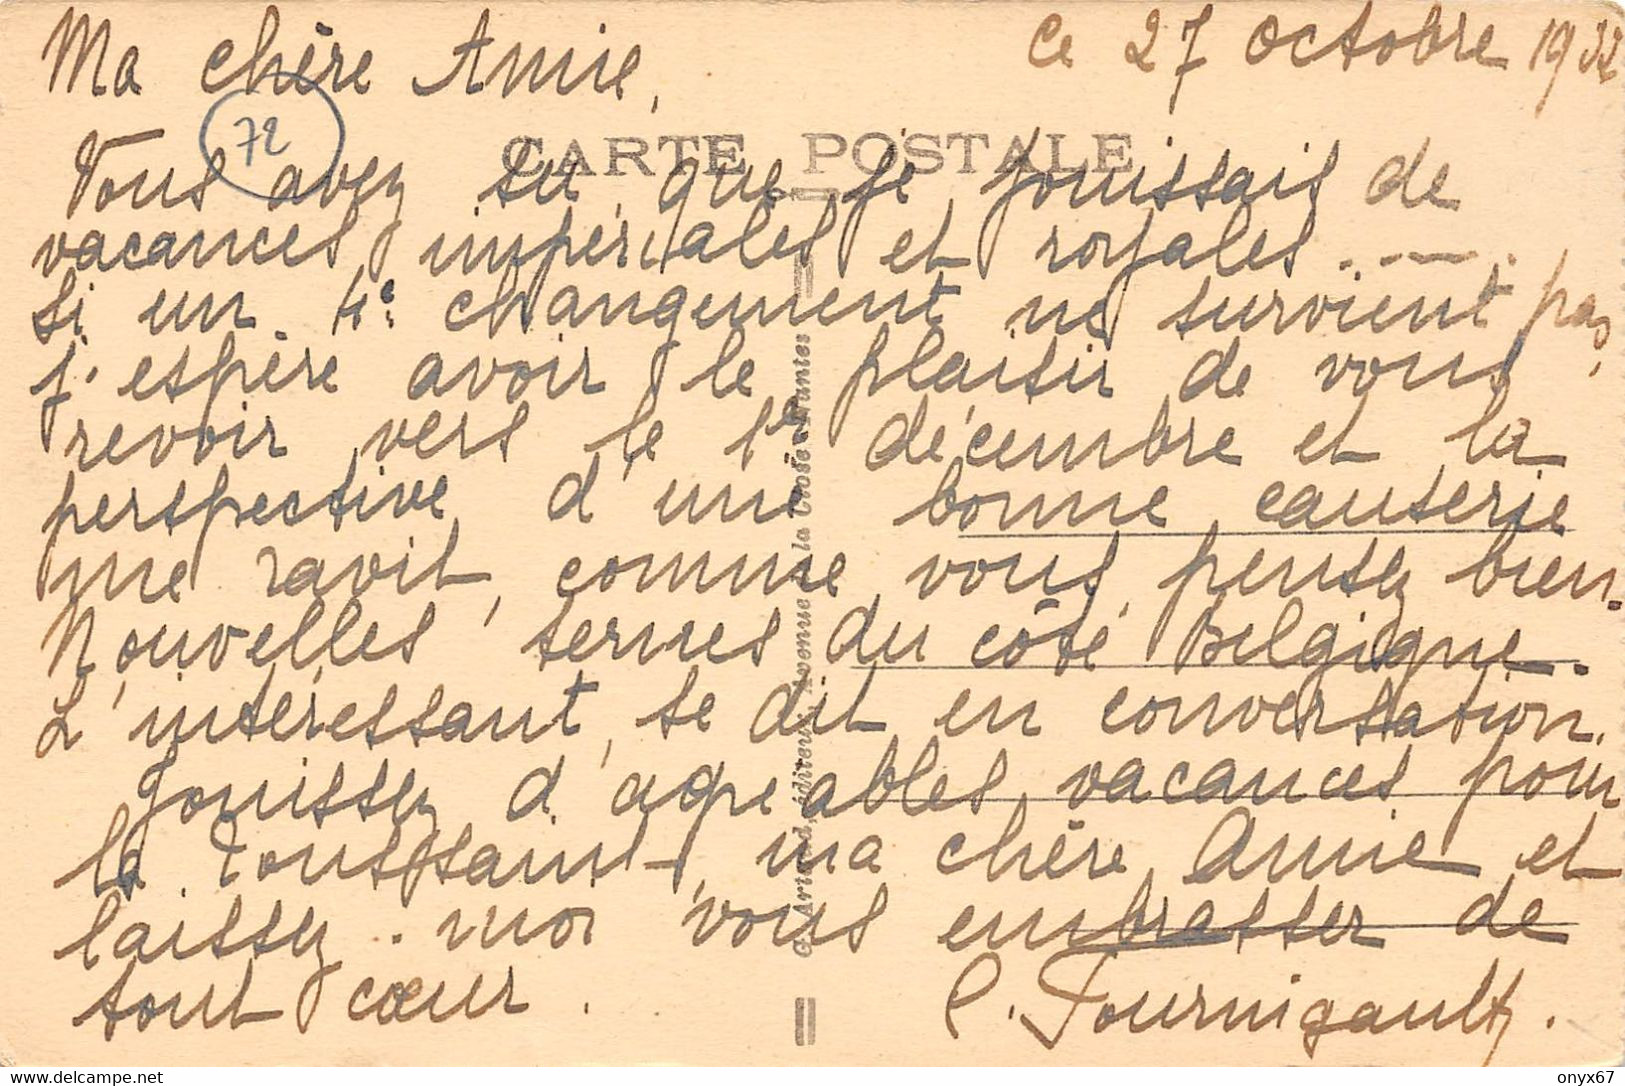 Ma chère Amie,
ce 27 octobre 1932
72
CARTE POSTALE
Vous avez su que je jouissais de
vacances impériales et royales . . — .
Si un 4e changement ne survient pas,
j'espère avoir le plaisir de vous
revoir vers le 1er décembre et la
perspective d'une bonne causerie
me ravit, comme vous pensez bien.
Nouvelles ternes du côté Belgique.
L'intéressant se dit en conversation.
Jouissez d'agréables vacances pour
la Toussaint, ma chère Amie et
laissez-moi vous embrasser de
tout cœur.
C. Fournigault.
G. Artaud, éditeur, Avenue de la Close - Nantes
delcampe.net
onyx67